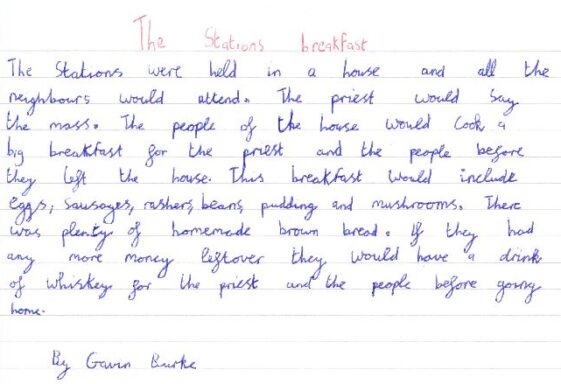 The Stations breakfast
The Stations were held in a house and all the
neighbours would attend. The priest would say
the mass. The people of the house would cook a
big breakfast for the priest and the people before
they left the house. This breakfast would include
eggs, sausages, rashers, beans, pudding and mushrooms. There
was plenty of homemade brown bread. If they had
any more money leftover they would have a drink
of whiskey for the priest and the people before going
home.
By Gavin Burke